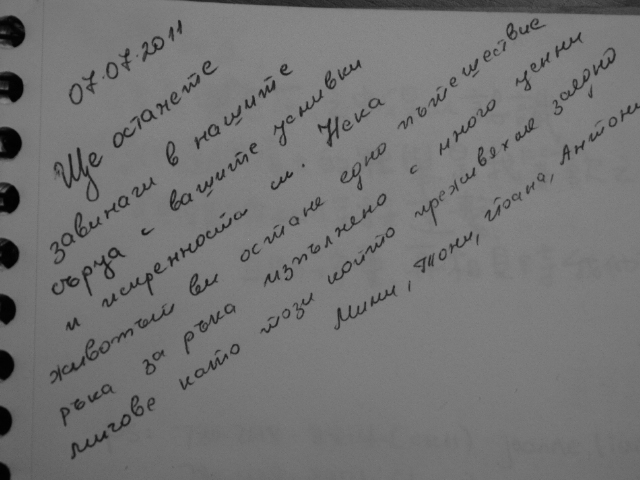 07.07.2011
Ще останете
завинаги в нашите
сърца с вашите усмивки
и искренността си. Нека
животът ви остане едно пътешествие
ръка за ръка изпълнено с много ценни
мигове като този който преживяхме заедно
Мими, Тони, Йоана, Антони